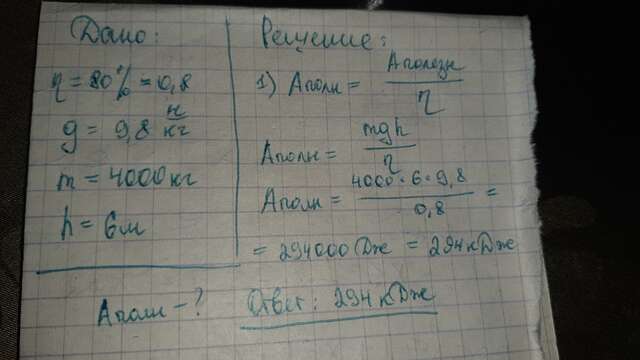 Дано:
η = 80% = 0,8
g = 9,8 н/кг
m = 4000 кг
h = 6 м
Аполн – ?
Решение:
1) Аполн = Аполезн / η
Аполн = mgh / η
Аполн = 4000 · 6 · 9,8 / 0,8 =
= 294000 Дж = 294 кДж
Ответ: 294 кДж